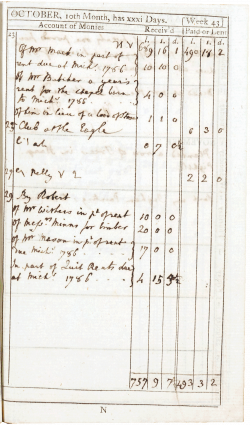 OCTOBER, 10th Month, has xxxi Days. (Week 43)
Account of Monies Receiv'd (Paid or Lent
l. s. d. l. s. d.
689 16 1 490 18 2
Of Mr Mack in part of
rent due at Mich. 1786 10 10 0
Of Mr Butcher a year's
rent for the
to Mich. 1786 4 0 0
of 1 1 0
25 Club at the Eagle 6 3 0
0 7 0½
27 Nelly 2 2 2 0
29 By Robert
Of Mr Withers in pt of rent 10 0 0
of Messrs Minns for timber 20 0 0
of Mr Mason in pt of rent
due Mich. 786 17 0 0
In part of Quit Rents due
at Mich. 1786 4 15 5½
757 9 7 493 3 2
N